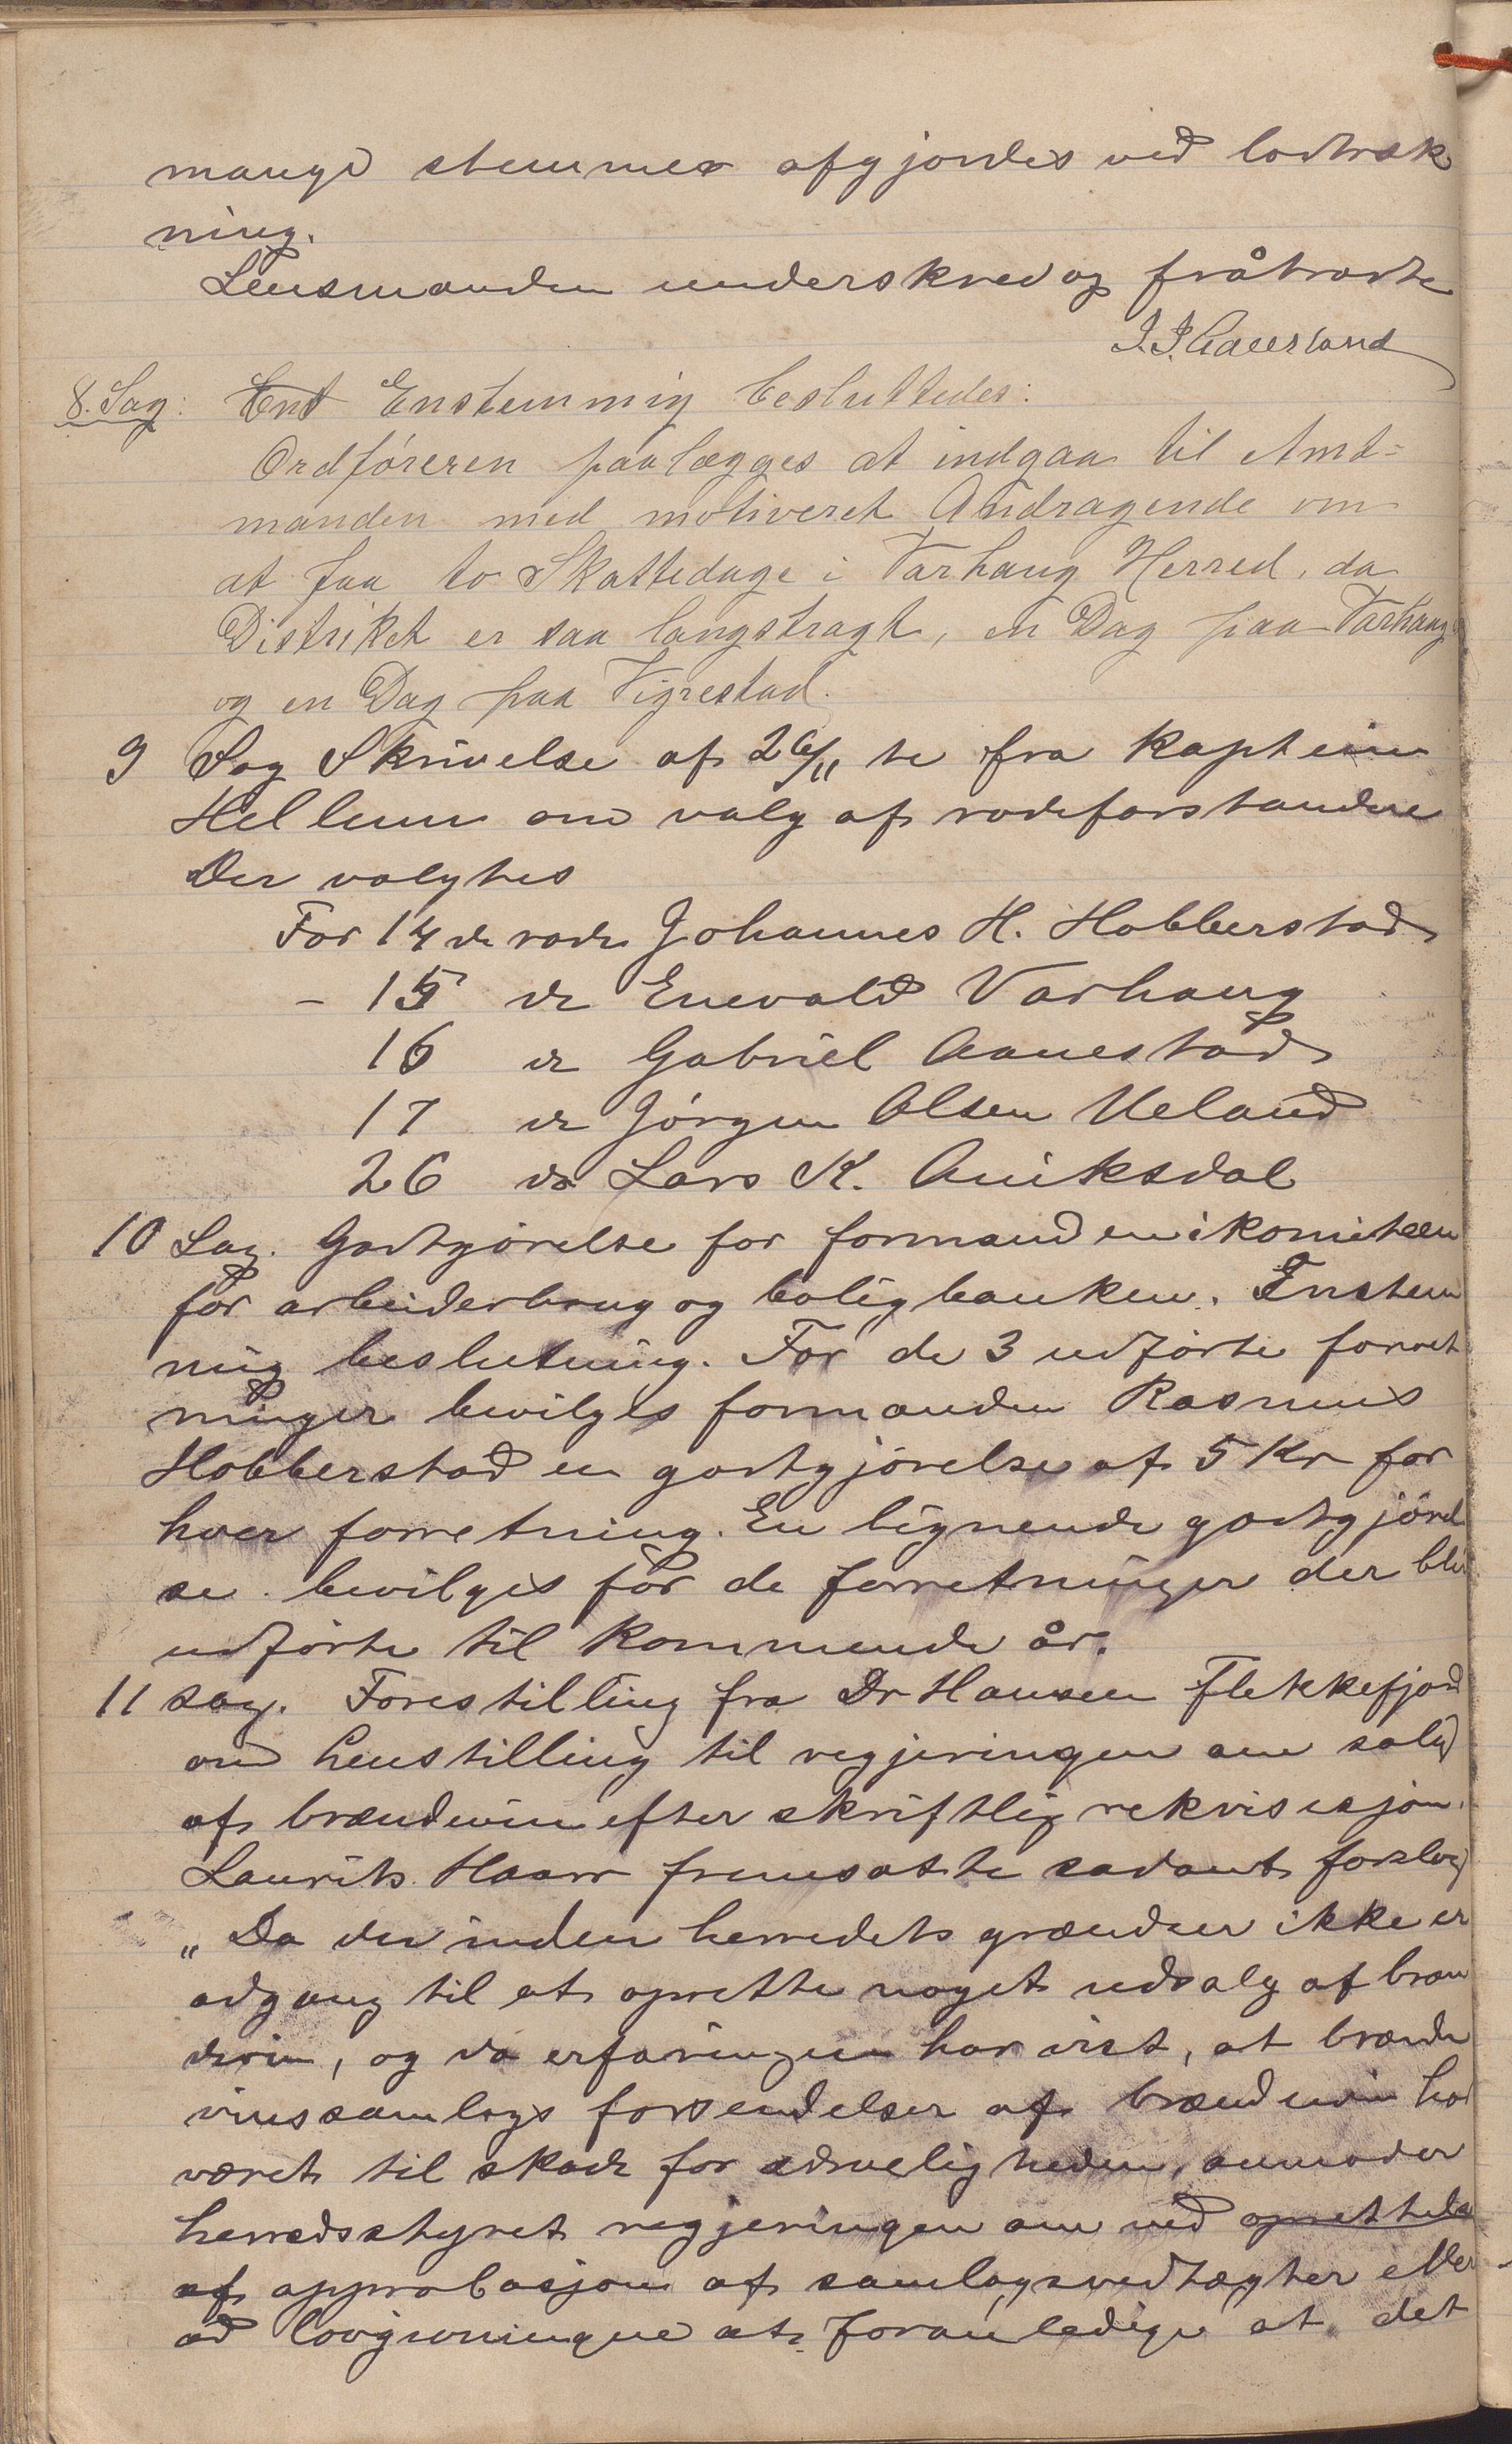 mange stemmer afgjordes ved lodtræk
ning.
Lensmanden underskrev og fråtrådte
8. Sag: Ent Enstemmig besluttedes:
Ordføreren paalægges at indgaa til Amt-
manden med motiveret Andragende om
at faa to Skattedage i Varhaug Herred, da
Distriket er saa langstragt, en Dag paa Varhaug
og en Dag paa Vigrestad.
9 Sag Skrivelse af 26/11 fra kaptein
Hellum om valg af rodeforstandere
Der valgtes
For 14 de rode Johannes H. Hobberstad
- 15 de Enevald Varhaug
16 de Gabriel Aanestad
17 de Jørgen Olsen Ueland
26 de Lars K. Auiksdal
10 Sag. Godtgörelse for formanden i komiteen
for arbeiderbrug og boligbanken. Enstem
mig beslutning. For de 3 udførte forret
ninger bevilges formanden Rasmus
Hobberstad en godtgjörelse af 5 Kr for
hver forretning. En lignende godtgjörel
se bevilges for de forretninger der blir
udførte til kommende år.
11 sag. Forestilling fra Dr Hansen Flekkefjord
om henstilling til regjeringen om salg
af brændevin efter skriftlig rekvisisjon.
Laurits Haarr fremsatte sadant forslag
„Da der inden herredets grændser ikke er
adgang til at oprette noget udsalg af bræn
devin, og da erfaringen har vist, at brænde
vinssamlags forsendelser af brændevin har
været til skade for ædrueligheden, anmoder
herredsstyret regjeringen om ved oprettelse
af approbasjon af samlagsvedtægter eller
ad lovgivningne at foranledige at det